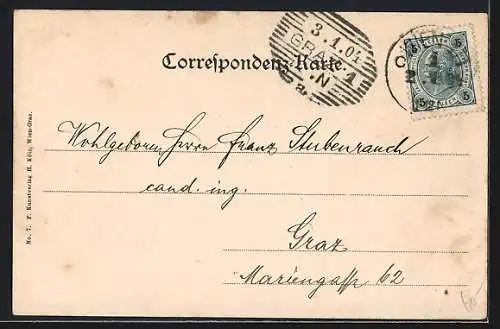 3.1.01
GRAZ 1
N
5 5
Correspondenz-Karte.
Wohlgeboren Herrn Franz Stubenrauch
cand. ing.
Graz
Mariengasse 62
No. 7. F. Kunstverlag H. Kölz, Wien-Graz.